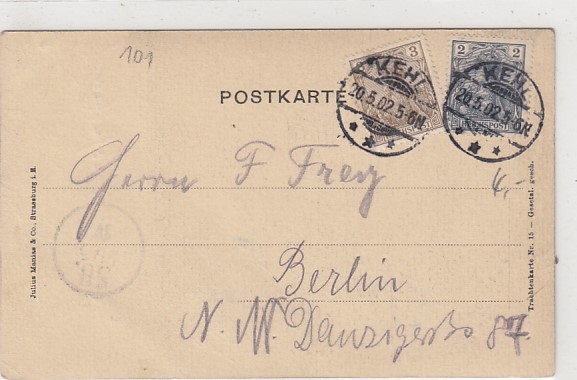 101
3
2
KEHL
20.5.02.5-6N
KEHL
20.5.02.5-6N
REICHSPOST
POSTKARTE
4,-
Herrn F Frey
Berlin
N. W. Danzigerstr 87.
Julius Manias & Co., Strassburg i. E.
Trachtenkarte Nr. 15 — Gesetzl. gesch.